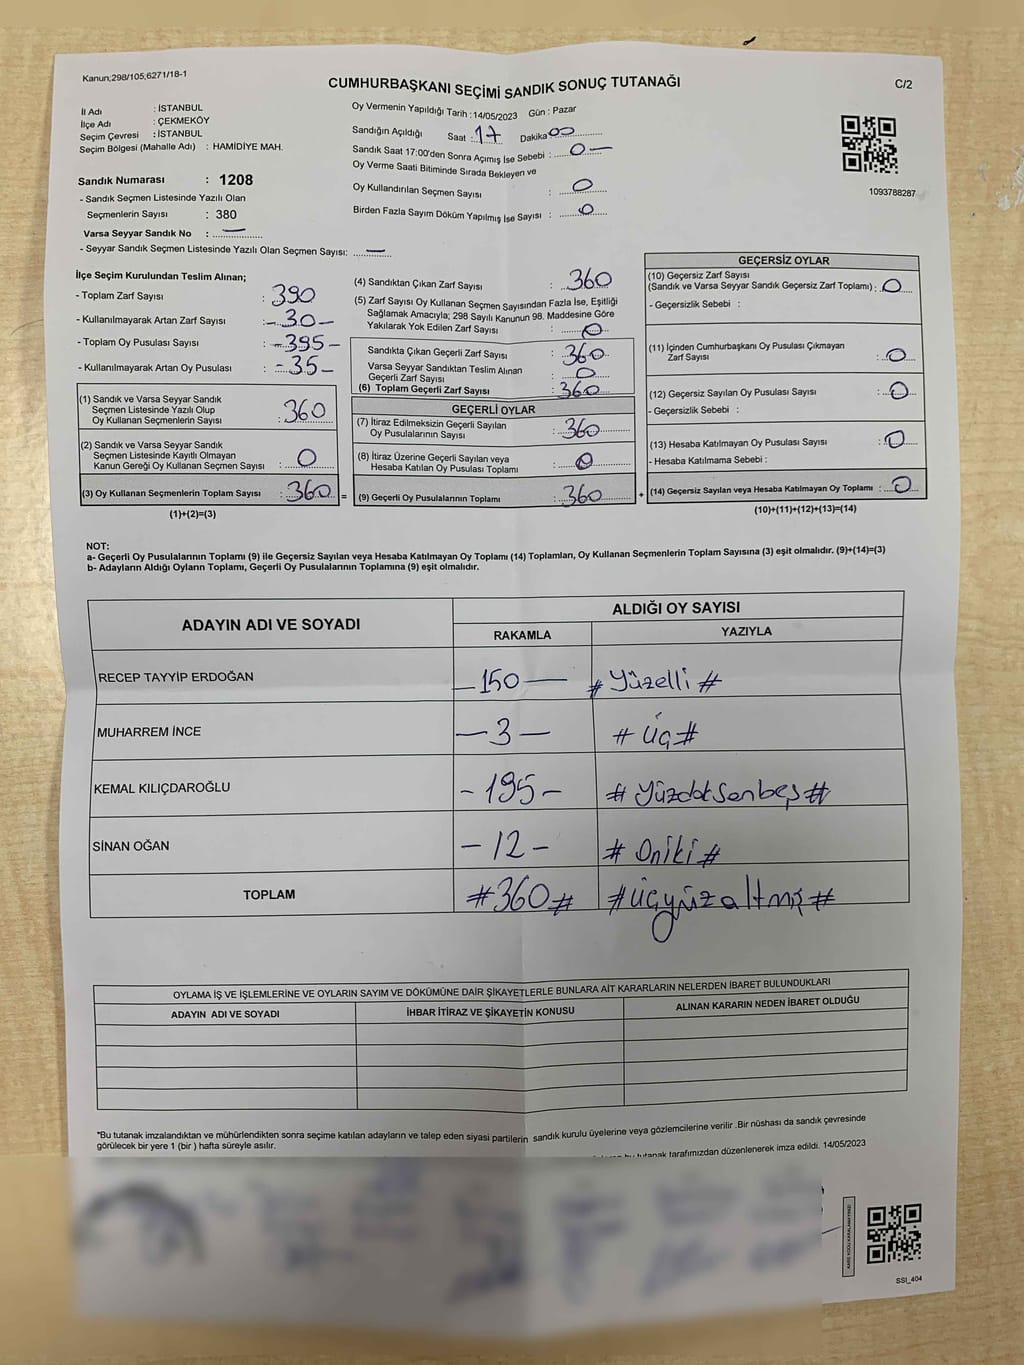 Kanun;298/105;6271/18-1
CUMHURBAŞKANI SEÇİMİ SANDIK SONUÇ TUTANAĞI
C/2
İl Adı : İSTANBUL
İlçe Adı : ÇEKMEKÖY
Seçim Çevresi : İSTANBUL
Seçim Bölgesi (Mahalle Adı) : HAMİDİYE MAH.
Sandık Numarası : 1208
- Sandık Seçmen Listesinde Yazılı Olan
Seçmenlerin Sayısı : 380
Varsa Seyyar Sandık No : —
- Seyyar Sandık Seçmen Listesinde Yazılı Olan Seçmen Sayısı: —
Oy Vermenin Yapıldığı Tarih : 14/05/2023 Gün : Pazar
Sandığın Açıldığı Saat : 17 Dakika 00
Sandık Saat 17:00'den Sonra Açımış İse Sebebi : 0 —
Oy Verme Saati Bitiminde Sırada Bekleyen ve
Oy Kullandırılan Seçmen Sayısı : 0
Birden Fazla Sayım Döküm Yapılmış İse Sayısı : 0
1093788287
İlçe Seçim Kurulundan Teslim Alınan;
- Toplam Zarf Sayısı : 390
- Kullanılmayarak Artan Zarf Sayısı : - 30 -
- Toplam Oy Pusulası Sayısı : - 395 -
- Kullanılmayarak Artan Oy Pusulası : - 35 -
(1) Sandık ve Varsa Seyyar Sandık
Seçmen Listesinde Yazılı Olup
Oy Kullanan Seçmenlerin Sayısı : 360
(2) Sandık ve Varsa Seyyar Sandık
Seçmen Listesinde Kayıtlı Olmayan
Kanun Gereği Oy Kullanan Seçmen Sayısı : 0
(3) Oy Kullanan Seçmenlerin Toplam Sayısı : 360 =
(1)+(2)=(3)
(4) Sandıktan Çıkan Zarf Sayısı : 360
(5) Zarf Sayısı Oy Kullanan Seçmen Sayısından Fazla İse, Eşitliği
Sağlamak Amacıyla; 298 Sayılı Kanunun 98. Maddesine Göre
Yakılarak Yok Edilen Zarf Sayısı : 0
Sandıkta Çıkan Geçerli Zarf Sayısı : 360
Varsa Seyyar Sandıktan Teslim Alınan
Geçerli Zarf Sayısı : 0
(6) Toplam Geçerli Zarf Sayısı : 360
GEÇERLİ OYLAR
(7) İtiraz Edilmeksizin Geçerli Sayılan
Oy Pusulalarının Sayısı : 360
(8) İtiraz Üzerine Geçerli Sayılan veya
Hesaba Katılan Oy Pusulası Toplamı : 0
(9) Geçerli Oy Pusulalarının Toplamı : 360 +
GEÇERSİZ OYLAR
(10) Geçersiz Zarf Sayısı
(Sandık ve Varsa Seyyar Sandık Geçersiz Zarf Toplamı) : 0
- Geçersizlik Sebebi :
(11) İçinden Cumhurbaşkanı Oy Pusulası Çıkmayan
Zarf Sayısı : 0
(12) Geçersiz Sayılan Oy Pusulası Sayısı : 0
- Geçersizlik Sebebi :
(13) Hesaba Katılmayan Oy Pusulası Sayısı : 0
- Hesaba Katılmama Sebebi :
(14) Geçersiz Sayılan veya Hesaba Katılmayan Oy Toplamı : 0
(10)+(11)+(12)+(13)=(14)
NOT:
a- Geçerli Oy Pusulalarının Toplamı (9) ile Geçersiz Sayılan veya Hesaba Katılmayan Oy Toplamı (14) Toplamları, Oy Kullanan Seçmenlerin Toplam Sayısına (3) eşit olmalıdır. (9)+(14)=(3)
b- Adayların Aldığı Oyların Toplamı, Geçerli Oy Pusulalarının Toplamına (9) eşit olmalıdır.
ADAYIN ADI VE SOYADI
ALDIĞI OY SAYISI
RAKAMLA YAZIYLA
RECEP TAYYİP ERDOĞAN — 150 — # Yüzelli #
MUHARREM İNCE — 3 — # üç #
KEMAL KILIÇDAROĞLU - 195 - # Yüzdoksenbeş #
SİNAN OĞAN - 12 - # Oniki #
TOPLAM # 360 # # üçyüzaltmış #
OYLAMA İŞ VE İŞLEMLERİNE VE OYLARIN SAYIM VE DÖKÜMÜNE DAİR ŞİKAYETLERLE BUNLARA AİT KARARLARIN NELERDEN İBARET BULUNDUKLARI
ADAYIN ADI VE SOYADI İHBAR İTİRAZ VE ŞİKAYETİN KONUSU ALINAN KARARIN NEDEN İBARET OLDUĞU
*Bu tutanak imzalandıktan ve mühürlendikten sonra seçime katılan adayların ve talep eden siyasi partilerin sandık kurulu üyelerine veya gözlemcilerine verilir .Bir nüshası da sandık çevresinde
görülecek bir yere 1 (bir ) hafta süreyle asılır.
bu tutanak tarafımızdan düzenlenerek imza edildi. 14/05/2023
SSI_404